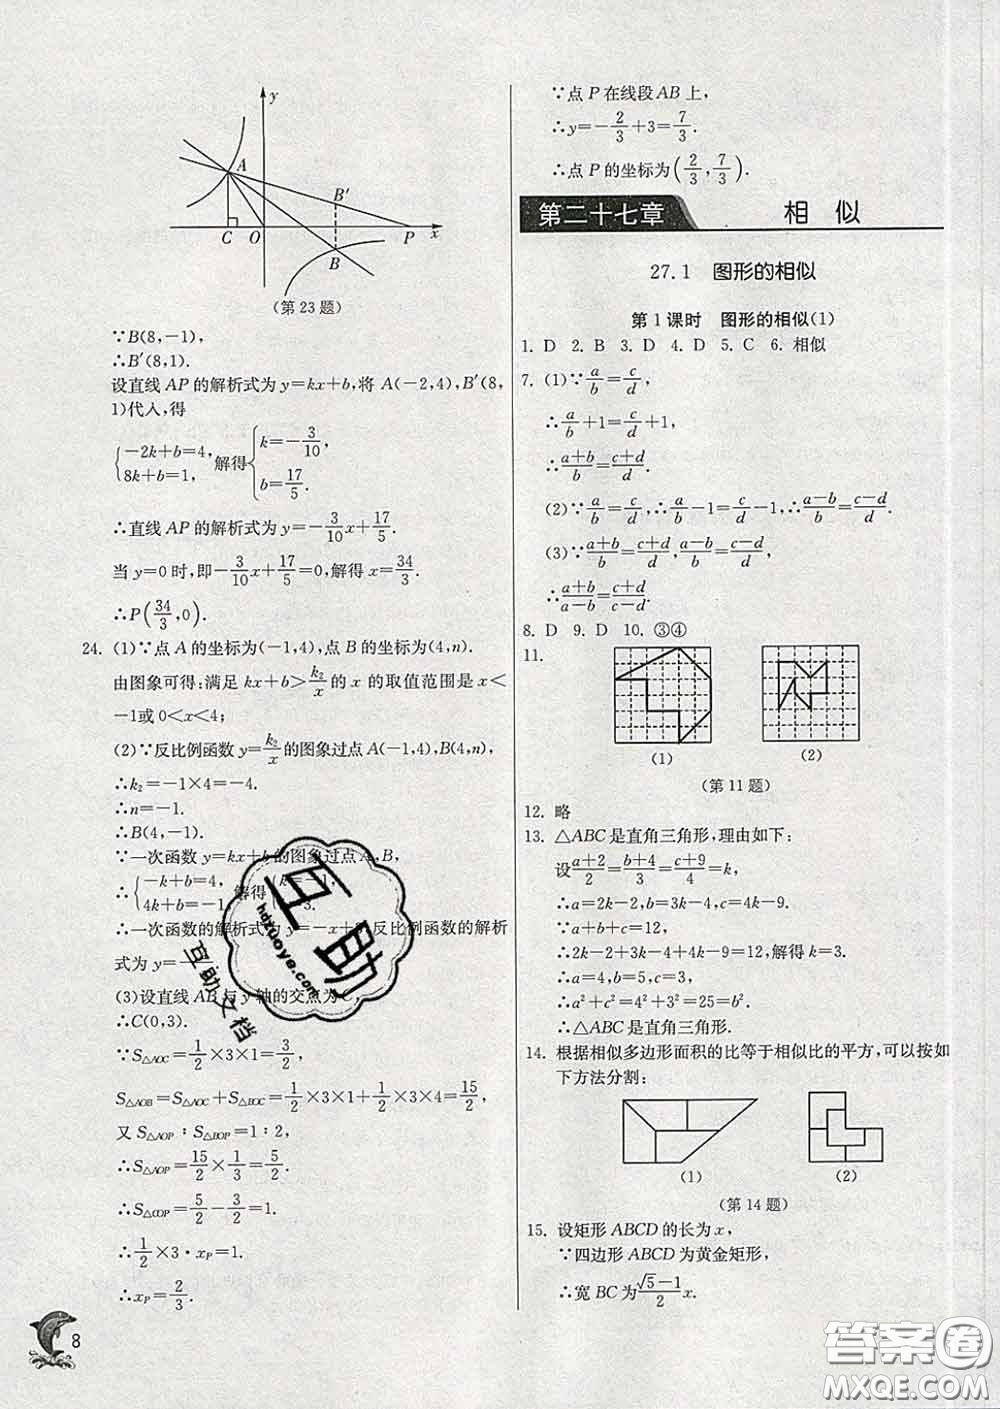 y
A
B′
C
O
P
x
B
(第23题)
∵B(8,−1),
∴B′(8,1).
设直线 AP 的解析式为 y=kx+b,将 A(−2,4),B′(8,
1)代入,得
{−2k+b=4, 8k+b=1, 解得{k=−3/10, b=17/5.
∴直线 AP 的解析式为 y=−3/10x+17/5.
当 y=0 时,即−3/10x+17/5=0,解得 x=34/3.
∴P(34/3,0).
24. (1)∵点 A 的坐标为(−1,4),点 B 的坐标为(4,n).
由图象可得:满足 kx+b>k₂/x 的 x 的取值范围是 x<
−1或 0<x<4;
(2)∵反比例函数 y=k₂/x的图象过点 A(−1,4),B(4,n),
∴k₂=−1×4=−4.
∴n=−1.
∴B(4,−1).
∵一次函数 y=kx+b 的图象过点 A,B,
∴{−k+b=4, 4k+b=−1, 解得{k=−1,
∴一次函数的解析式 y=−x+ 反比例函数的解析
式为 y=
(3)设直线 AB 与 y 轴的交点为 C,
∴C(0,3).
∵S△AOC=1/2×3×1=3/2,
S△AOB=S△AOC+S△BOC=1/2×3×1+1/2×3×4=15/2,
又 S△AOP∶S△BOP=1∶2,
∴S△AOP=15/2×1/3=5/2.
∴S△COP=5/2−3/2=1.
∴1/2×3·xP=1.
∴xP=2/3.
8
∵点 P 在线段 AB 上,
∴y=−2/3+3=7/3.
∴点 P 的坐标为(2/3,7/3).
第二十七章 相 似
27.1 图形的相似
第 1 课时 图形的相似(1)
1. D 2. B 3. D 4. D 5. C 6. 相似
7. (1)∵a/b=c/d,
∴a/b+1=c/d+1,
∴(a+b)/b=(c+d)/d.
(2)∵a/b=c/d,∴a/b−1=c/d−1,∴(a−b)/b=(c−d)/d.
(3)∵(a+b)/b=(c+d)/d,(a−b)/b=(c−d)/d,
∴(a+b)/(a−b)=(c+d)/(c−d).
8. D 9. D 10. ③④
11.
(1) (2)
(第11题)
12. 略
13. △ABC是直角三角形,理由如下:
设(a+2)/2=(b+4)/3=(c+9)/4=k,
∴a=2k−2,b=3k−4,c=4k−9.
∵a+b+c=12,
∴2k−2+3k−4+4k−9=12,解得 k=3.
∴a=4,b=5,c=3.
∴a²+c²=4²+3²=25=b².
∴△ABC是直角三角形.
14. 根据相似多边形面积的比等于相似比的平方,可以按如
下方法分割:
(1) (2)
(第14题)
15. 设矩形 ABCD 的长为 x,
∵四边形 ABCD 为黄金矩形,
∴宽 BC 为(√5−1)/2x.
互助
hdzuoye.com
互助文档
答案圈
MXQE.COM